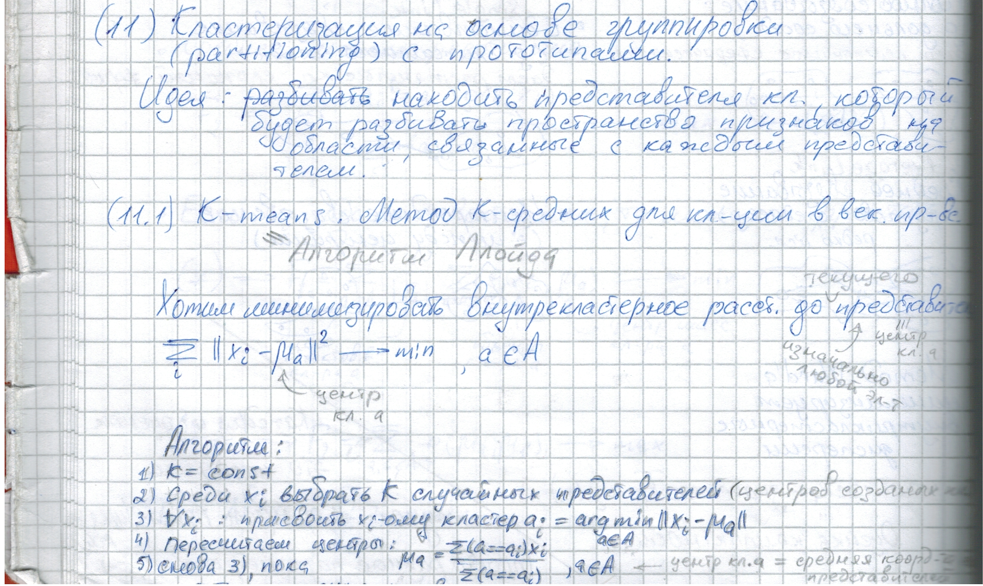 (11) Кластеризация на основе группировки
(partitioning) с прототипами.
Идея: разбивать находить представителя кл., который
будет разбивать пространство признаков на
области, связанные с каждым представи-
телем.
(11.1) K-means. Метод K-средних для кл-ции в век. пр-ве
= Алгоритм Ллойда
текущего
Хотим минимизировать внутрекластерное расст. до представител
центр
кл. a
изначально
любой эл-т
∑i ||xi - μa||² → min, a ∈ A
центр
кл. a
Алгоритм:
1) K = const
2) Среди xi выбрать K случайных представителей (центров созданых
3) ∀xi : присвоить xi-ому кластер ai = argmin a∈A ||xi - μa||
4) Пересчитаем центры: μa = ∑(a==ai)xi / ∑(a==ai), a∈A
5) снова 3), пока
← центр кл. a = средняя коорд-
представителей